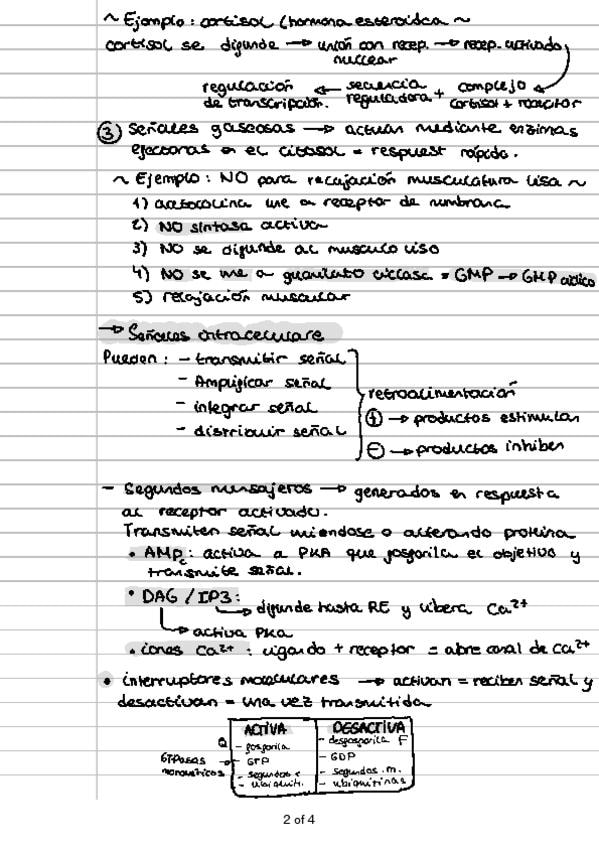 ~ Ejemplo: cortisol (hormona esteroidea ~
cortisol se difunde → unión con recep. → recep. activado
nuclear
regulación ← secuencia + complejo
de transcripción. reguladora cortisol + receptor
③ Señales gaseosas → actúan mediante enzimas
efectoras en el citosol = respuest rápida.
~ Ejemplo: NO para relajación musculatura lisa ~
1) acetilcolina une a receptor de membrana
2) NO sintasa activa
3) NO se difunde al musculo liso
4) NO se une a guanilato ciclasa = GMP → GMP cíclico
5) relajación muscular
→ Señales intracelulare
Pueden: - transmitir señal
- Amplificar señal
- integrar señal
- distribuir señal
retroalimentación
⊕ → productos estimulan
⊖ → productos inhiben
- Segundos mensajeros → generados en respuesta
al receptor activado.
Transmiten señal uniendose o alterando proteina
• AMPc: activa a PKA que fosforila el objetivo y
transmite señal.
• DAG / IP3:
→ difunde hasta RE y libera Ca²⁺
→ activa PKA
• iones Ca²⁺: ligando + receptor = abre canal de Ca²⁺
• interruptores moleculares → activan = reciben señal y
desactivan = una vez transmitida
ACTIVA DESACTIVA
- fosforila - desfosforila F
GTPasas → - GTP - GDP
monoméricas - segundos - segundos .m.
- ubiquiti. - ubiquitinas
2 of 4